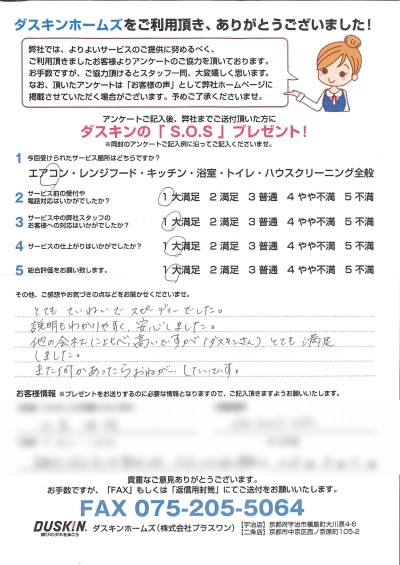 ダスキンホームズをご利用頂き、ありがとうございました！
弊社では、よりよいサービスのご提供に努めるべく、
ご利用頂きましたお客様よりアンケートのご協力を頂いております。
お手数ですが、ご協力頂けるとスタッフ一同、大変嬉しく思います。
なお、頂いたアンケートは「お客様の声」として弊社ホームページに
掲載させていただく場合がございます。予めご了承くださいませ。
アンケートご記入後、弊社までご送付頂いた方に
ダスキンの「S.O.S」プレゼント！
※同封のアンケートご記入例に沿ってご記入くださいませ。
1 今回受けられたサービス箇所はどちらですか？
エアコン・レンジフード・キッチン・浴室・トイレ・ハウスクリーニング全般
2 サービス前の受付や
電話対応はいかがでしたか？ 1 大満足 2 満足 3 普通 4 やや不満 5 不満
3 サービス中の弊社スタッフの
お客様への対応はいかがでしたか？ 1 大満足 2 満足 3 普通 4 やや不満 5 不満
4 サービスの仕上がりはいかがでしたか？ 1 大満足 2 満足 3 普通 4 やや不満 5 不満
5 総合評価をお願い致します。 1 大満足 2 満足 3 普通 4 やや不満 5 不満
その他、ご感想やお気づきの点などをお聞かせくださいませ。
とても ていねいで スピーディーでした。
説明もわかりやすく、安心しました。
他の会社にくらべ、高いですが(ダスキンさん)、とても 満足
しました。
また何かあったらおねがいしたいです。
お客様情報 ※プレゼントをお送りするのに必要な情報となりますので、ご記入頂きますようお願いいたします。
貴重なご意見ありがとうございます。
お手数ですが、「FAX」もしくは「返信用封筒」にてご送付をお願いいたします。
FAX 075-205-5064
DUSKIN 喜びのタネをまこう ダスキンホームズ（株式会社プラスワン）
【宇治店】京都府宇治市槇島町大川原4-6
【二条店】京都市中京区西ノ京原町105-2